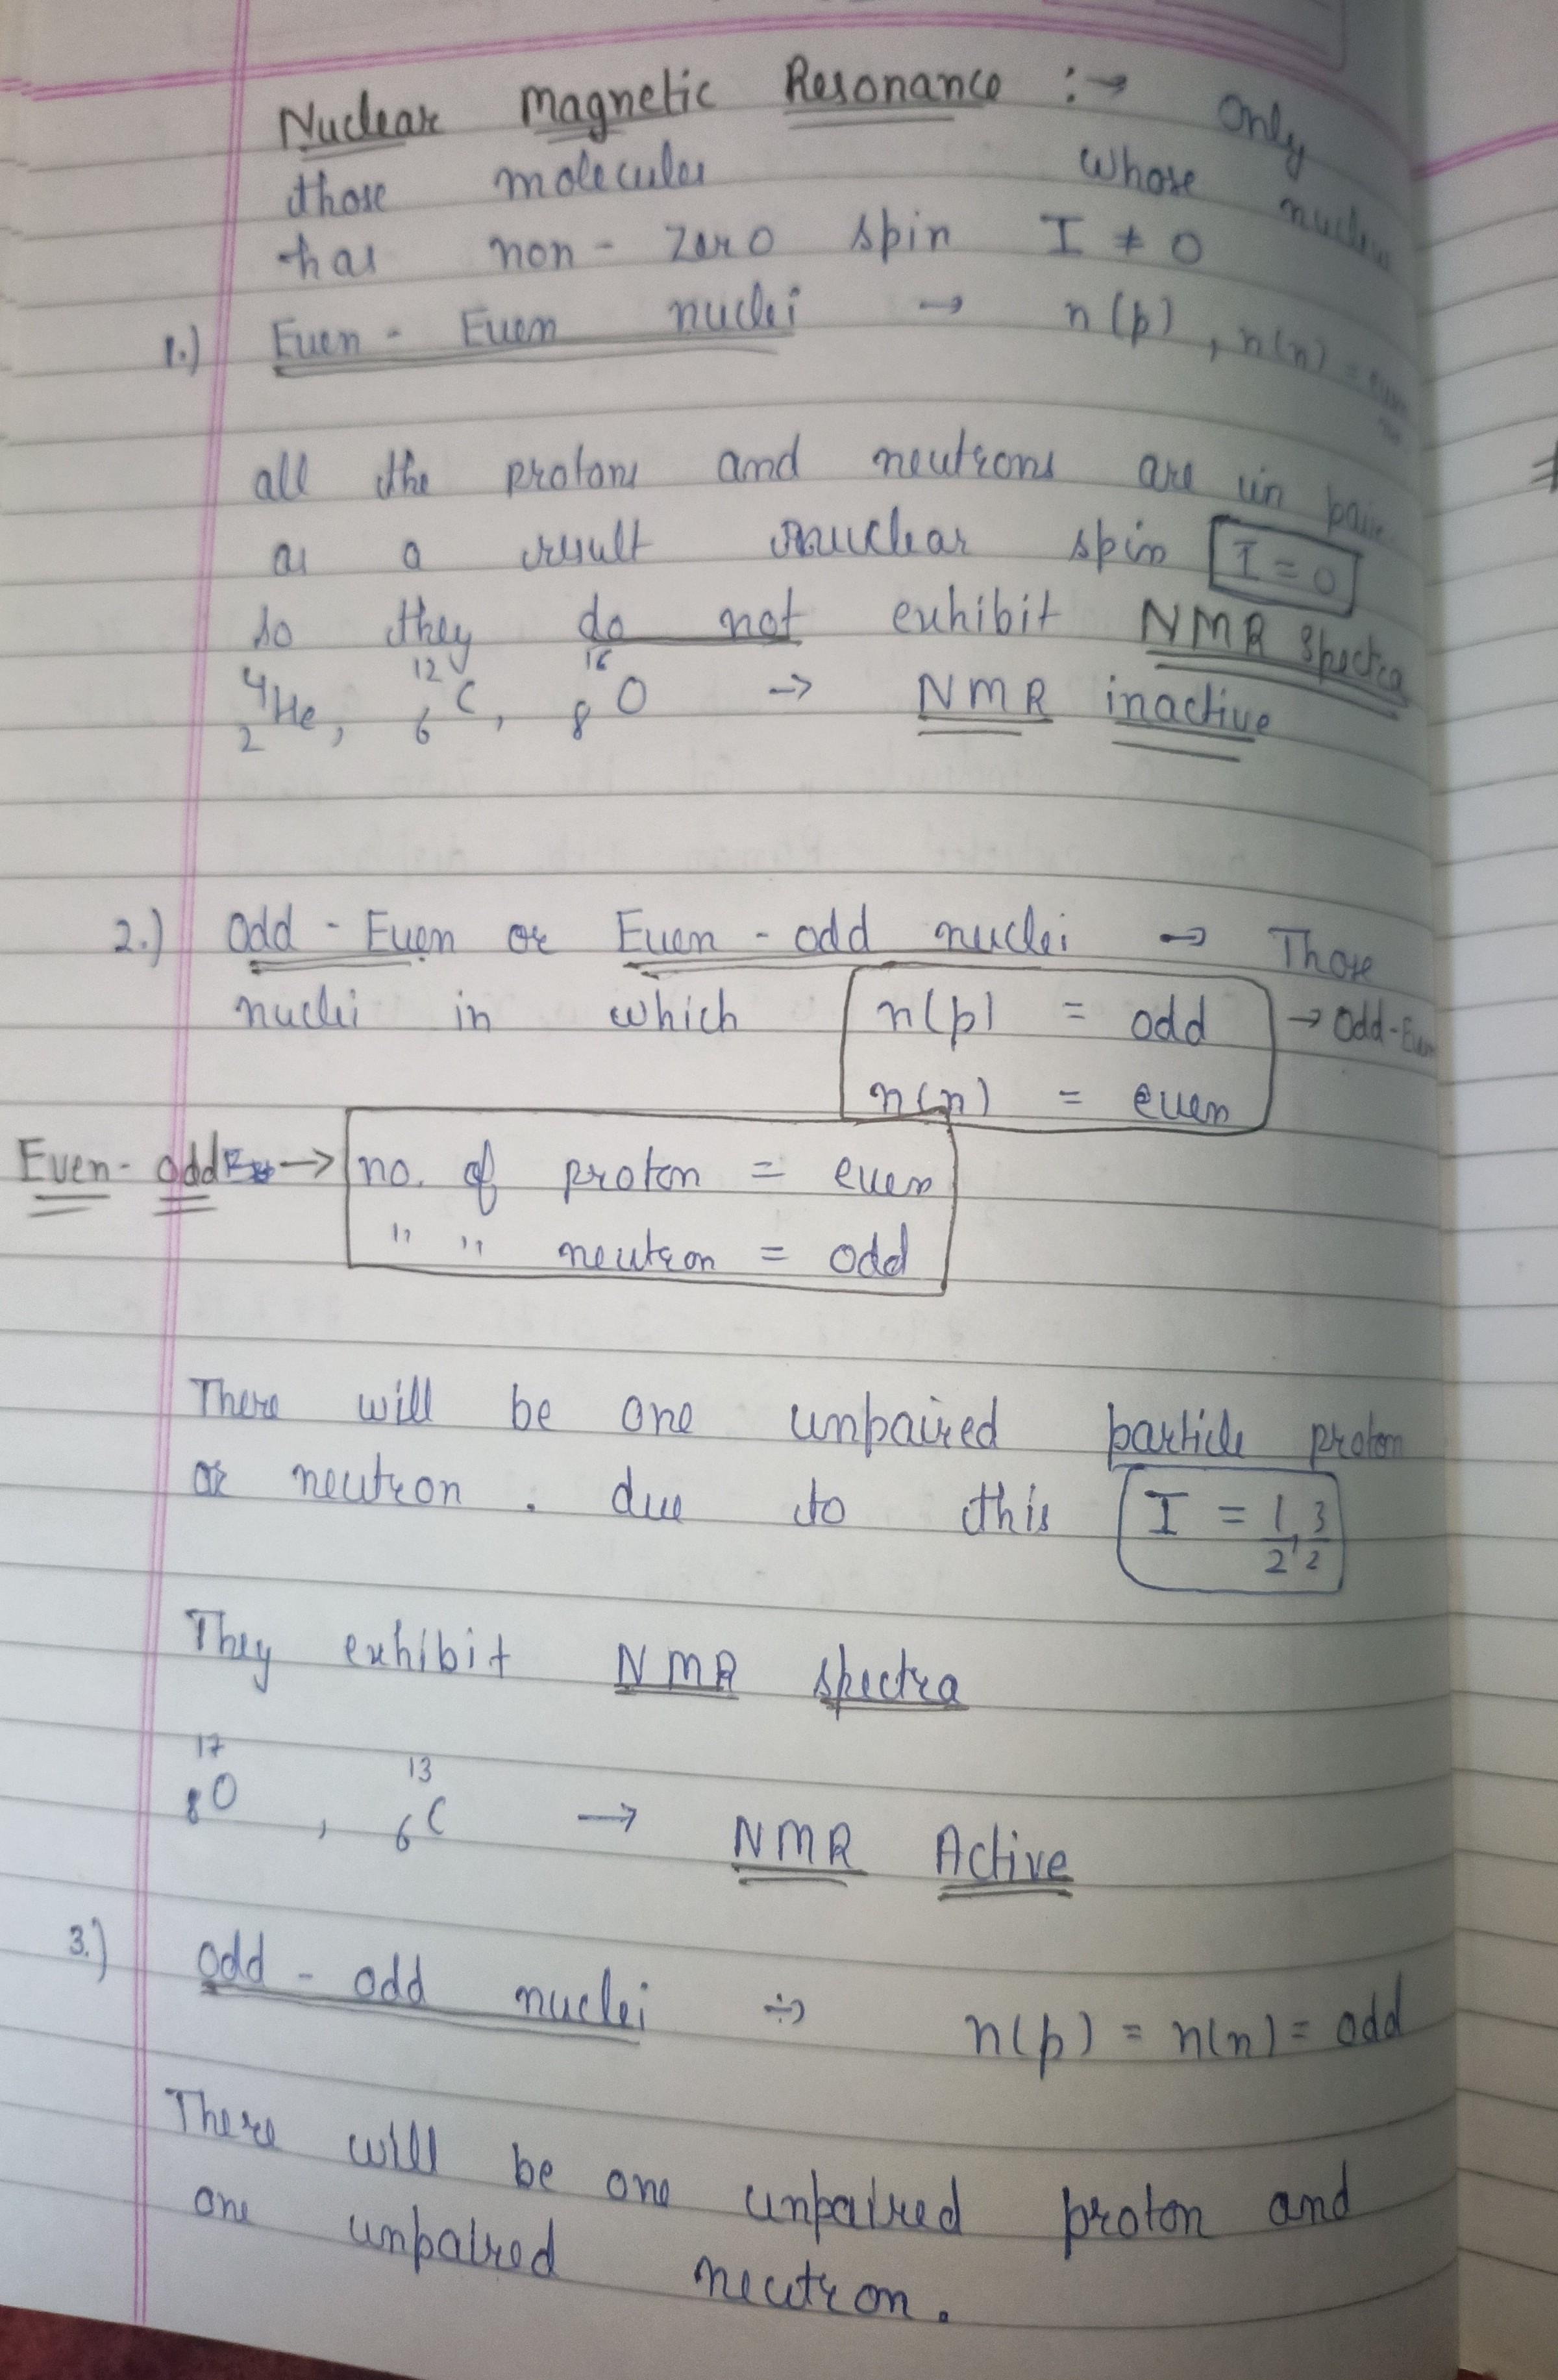 Nuclear Magnetic Resonance :→ Only
those molecules whose nucleus
has non - zero spin I ≠ 0
1.) Even - Even nuclei → n(p), n(n) = even
all the protons and neutrons are in pair
as a result nuclear spin I = 0
so they do not exhibit NMR spectra
⁴₂He, ¹²₆C, ¹⁶₈O → NMR inactive
2.) Odd - Even or Even - odd nuclei → Those
nuclei in which n(p) = odd → Odd-Even
n(n) = even
Even - odd → no. of proton = even
" " neutron = odd
There will be one unpaired particle proton
or neutron . due to this I = 1/2, 3/2
They exhibit NMR spectra
¹⁷₈O , ¹³₆C → NMR Active
3.) Odd - odd nuclei ÷→ n(p) = n(n) = odd
There will be one unpaired proton and
one unpaired neutron.